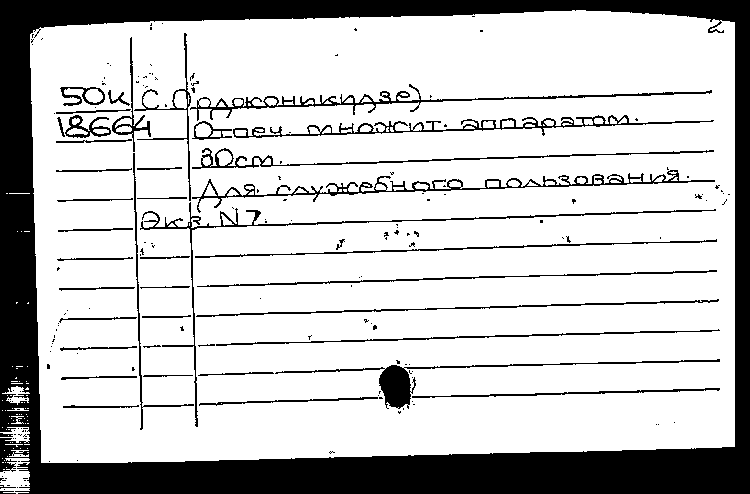 2
50к С. Орджоникидзе).
18664 Отпеч. множит. аппаратом.
30см.
Для служебного пользования.
Экз. N7.